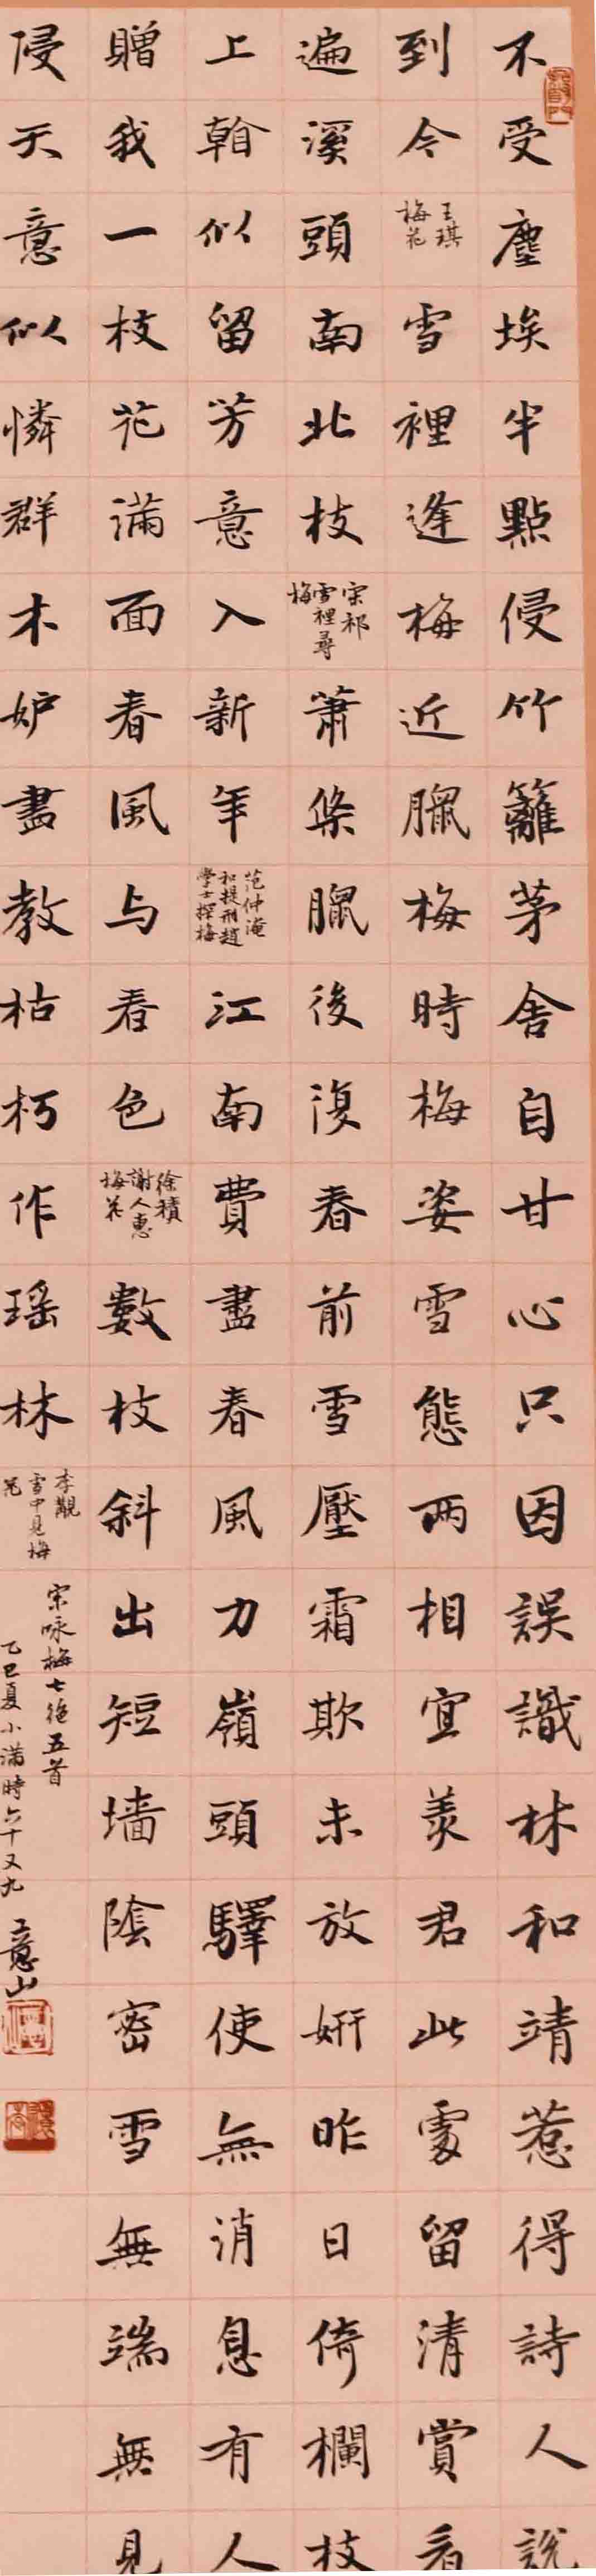 不受塵埃半點侵竹籬茅舍自甘心只因誤識林和靖惹得詩人說
到今
王琪
梅花
雪裡逢梅近臘梅時梅姿雪態兩相宜羨君此處留清賞看
遍溪頭南北枝
宋祁
雪裡尋
梅
蕭條臘後復春前雪壓霜欺未放妍昨日倚欄枝
上翰似留芳意入新年
范仲淹
和提刑趙
學士探梅
江南費盡春風力嶺頭驛使無消息有人
贈我一枝花滿面春風与春色
徐積
謝人惠
梅花
數枝斜出短墻陰密雪無端無見
侵天意似憐群木妒盡教枯朽作瑶林
李覯
雪中見梅
花
宋咏梅七絕五首
乙巳夏小滿時六十又九
意山